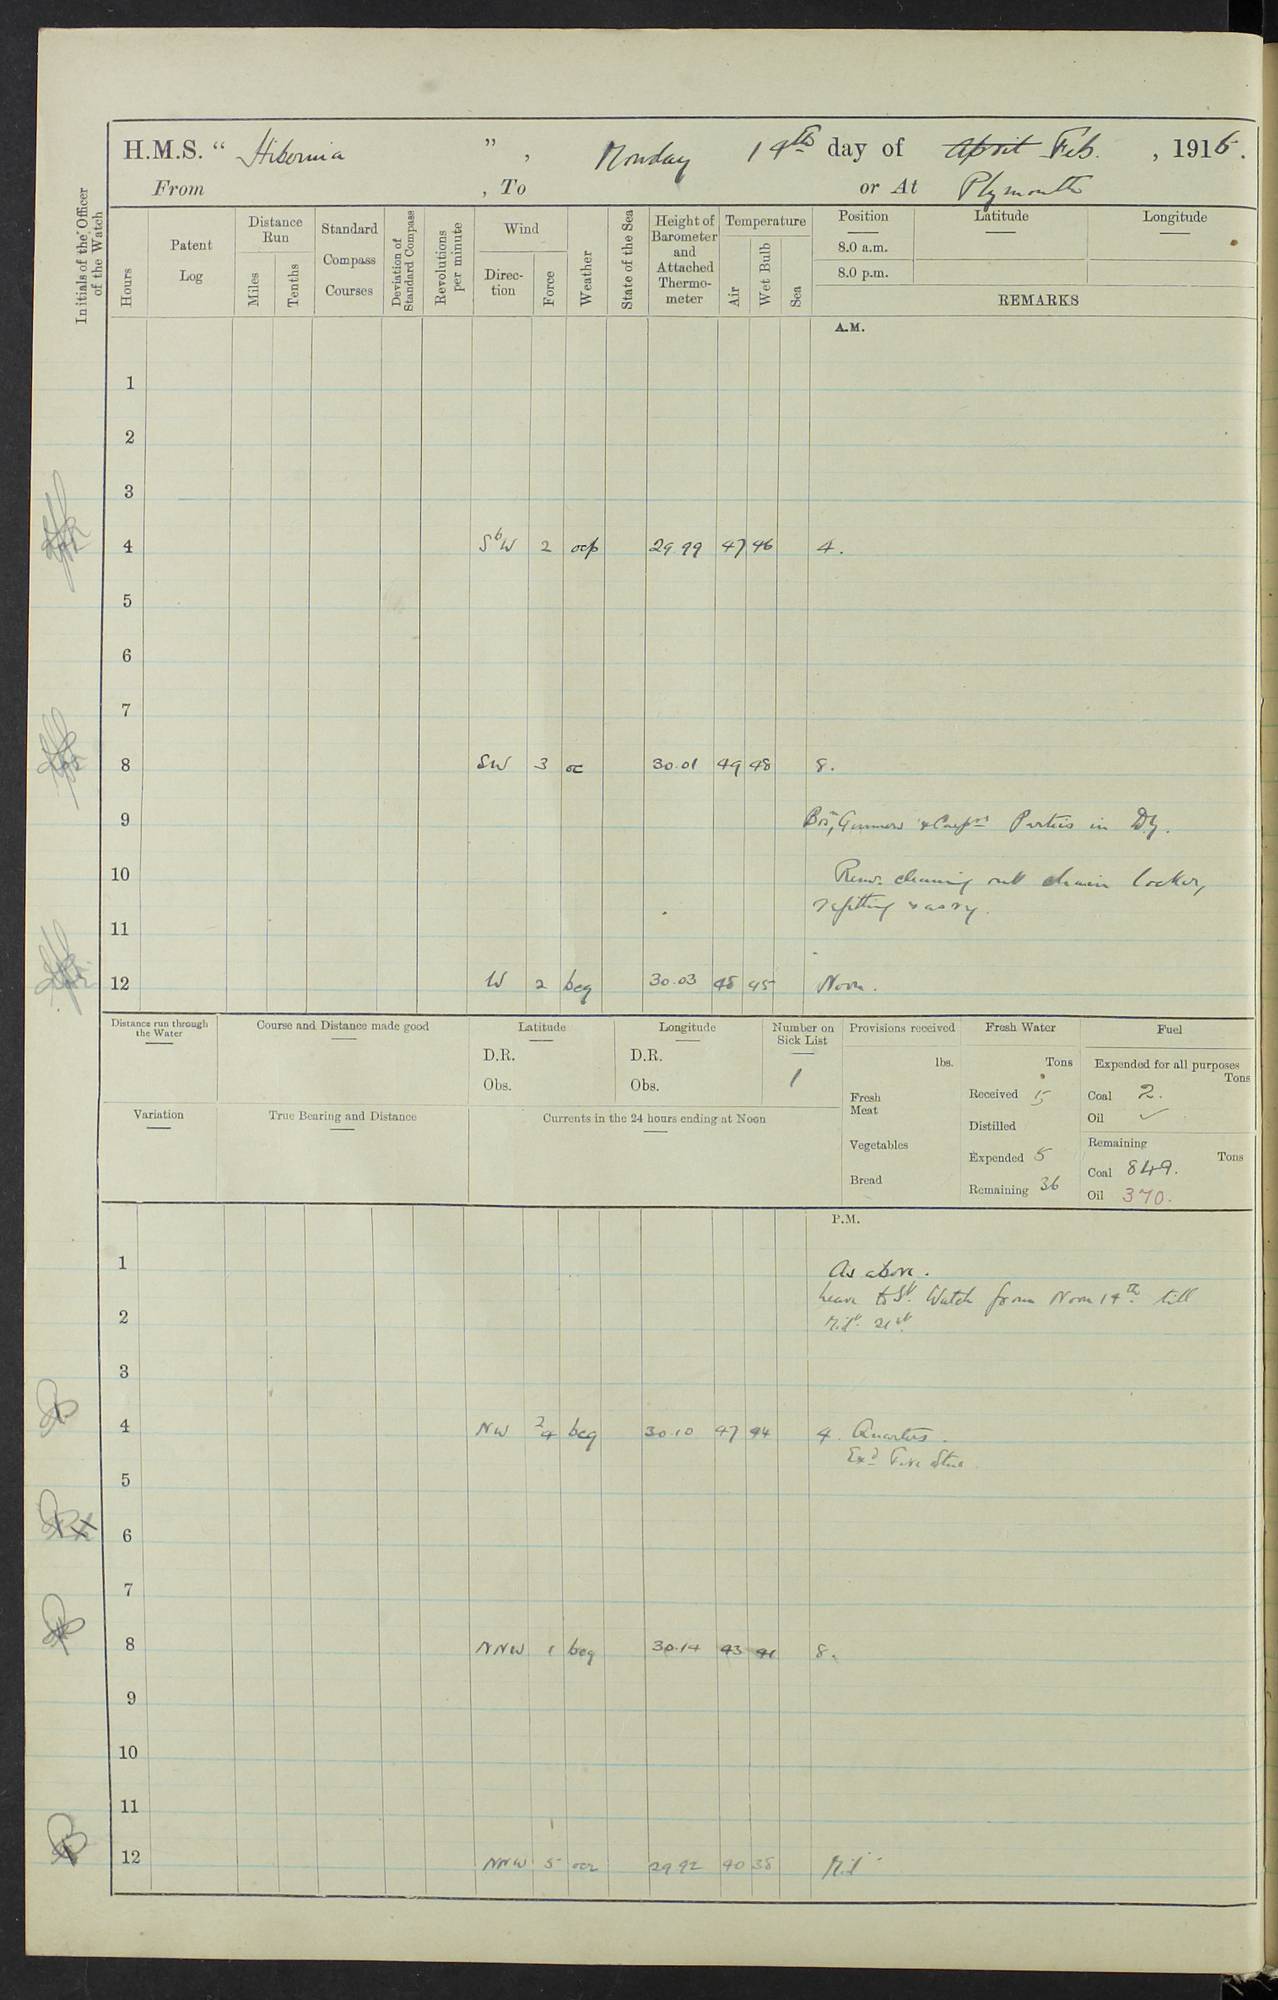 H.M.S. “ Hibernia ” , Monday 14th day of April Feb. , 1916.
From , To or At Plymouth
Initials of the Officer of the Watch
Hours
Patent Log
Distance Run
Miles
Tenths
Standard Compass Courses
Deviation of Standard Compass
Revolutions per minute
Wind
Direction
Force
Weather
State of the Sea
Height of Barometer and Attached Thermometer
Temperature
Air
Wet Bulb
Sea
Position Latitude Longitude
8.0 a.m.
8.0 p.m.
REMARKS
A.M.
1
2
3
4 SbW 2 ocp 29.99 47 46 4.
5
6
7
8 SW 3 oc 30.01 49 48 8.
9 Gunners & Carprs Parties in Dy.
10 Remr cleaning out chain locker,
refitting
11
12 W 2 bcq 30.03 48 45 Noon.
Distance run through the Water
Course and Distance made good
Latitude
D.R.
Obs.
Longitude
D.R.
Obs.
Number on Sick List
1
Variation
True Bearing and Distance
Currents in the 24 hours ending at Noon
Provisions received
lbs.
Fresh Meat
Vegetables
Bread
Fresh Water
Tons
Received 15
Distilled
Expended 5
Remaining 36
Fuel
Expended for all purposes
Tons
Coal 2.
Oil ✓
Remaining
Tons
Coal 849.
Oil 370.
P.M.
1 As above.
Leave to Watch from Noon 14th till
2 Midt 21st
3
4 NW 2/4 bcq 30.10 47 44 4. Quarters.
Exd Fire
5
6
7
8 NNW 1 bcq 30.14 43 41 8.
9
10
11
12 NNW 5 29.92 40 38 Midt